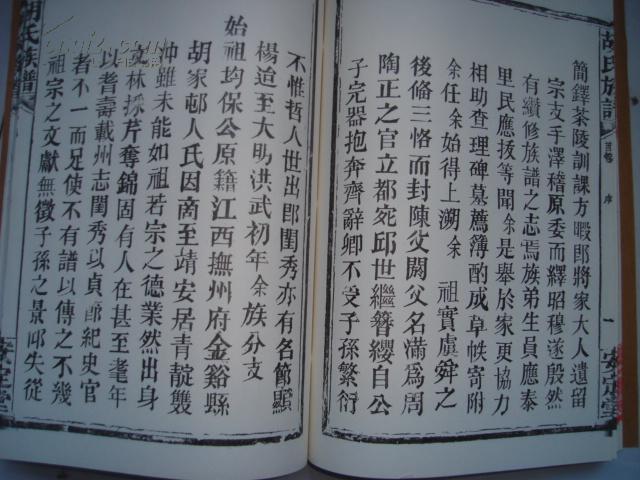 胡氏族譜
首卷
序
一
安定堂
簡鐸茶陵訓課方暇郎將家大人遺留
宗支手澤稽原委而繹昭穆遂殷然
有纘修族譜之志焉族弟生員應泰
里民應拔等聞余是舉於家更協力
相助查理碑墓薦簿酌成草帙寄附
余任余始得上溯余 祖實虞舜之
後俻三恪而封陳父閼父名滿爲周
陶正之官立都宛邱世繼簪纓自公
子完器抱奔齊辭卿不受子孫繁衍
不惟哲人世出郎閨秀亦有名節顯
楊迨至大明洪武初年余族分支
始祖均保公原籍江西撫州府金谿縣
胡家邨人氏因商至靖安居青靛雙
冲雖未能如祖若宗之德業然出身
文林採芹奪錦固有人在甚至耄年
以耆壽載州志閨秀以貞郎紀史官
者不一而足使不有譜以傳之不幾
祖宗之文獻無徵子孫之景仰失從
胡氏族譜
安定堂